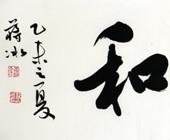 和
乙未之夏
蒋冰